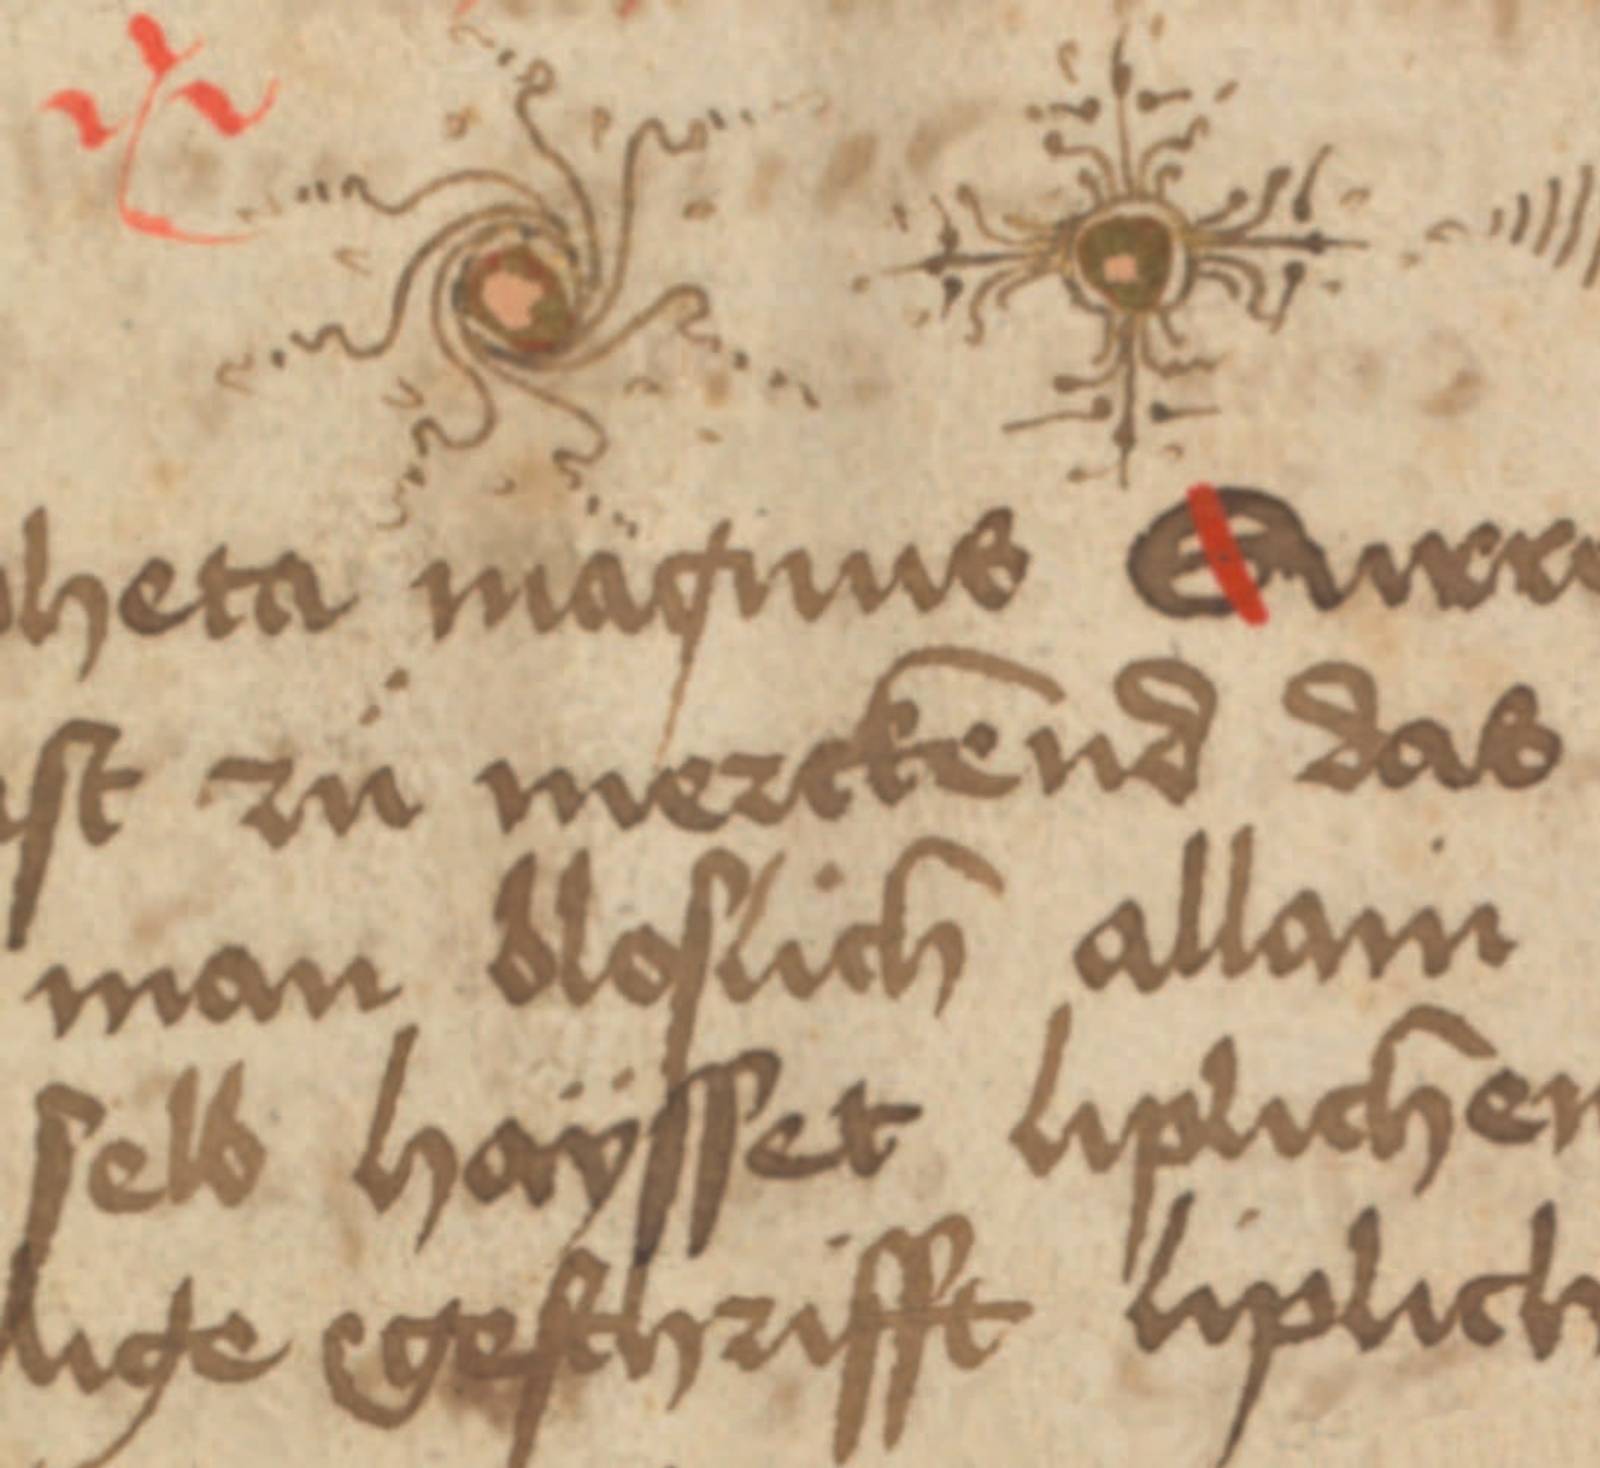 pheta magnus Surre
ist zü merckend das
man bloslich allain
selb haÿsset liplichen
lige geschrifft liplich